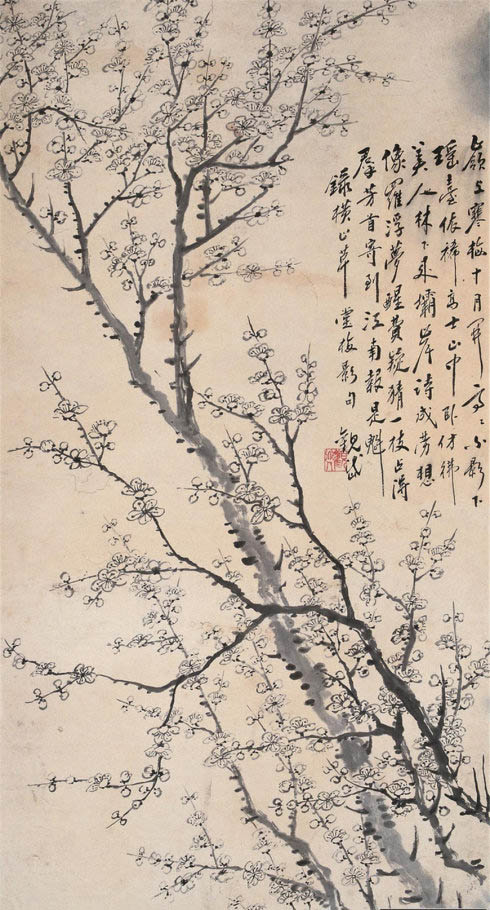 嶺上寒梅十月開亭〻小影下
瑤臺依稀高士山中臥仿彿
美人林下來灞岸詩成勞想
像羅浮夢醒費疑猜一枝占得
羣芳首寄到江南報是魁
錄橫山草堂梅影句
觀岱